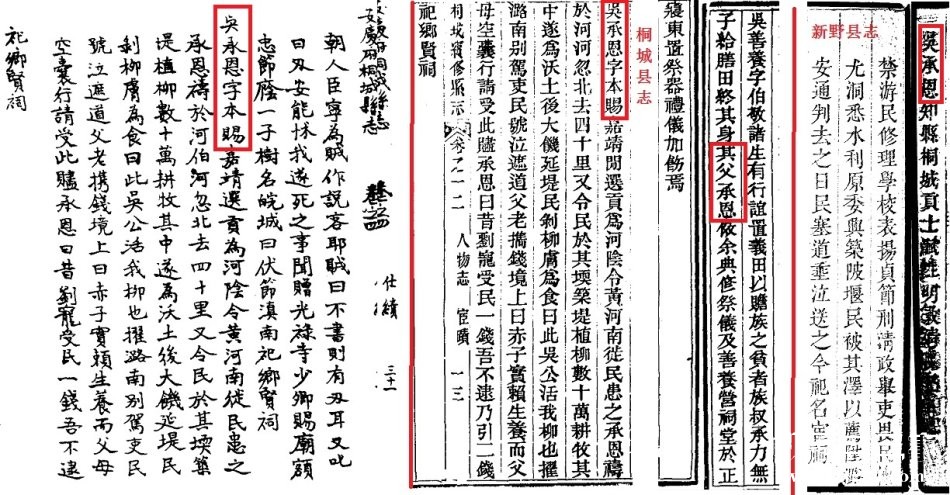 新野县志
吳承恩知縣桐城貢士賦性明敏
禁游民修理學校表揚貞節刑清政舉吏畏民
尤洞悉水利原委興築陂堰民被其澤以薦陞
安通判去之日民塞道垂泣送之今祀名宦祠
吳善養字伯敬諸生有行誼置義田以贍族之貧者族叔承力無
子給膳田終其身其父承恩倣余典修祭儀及善養營祠堂於正
寢東置祭器禮儀加飭焉
桐城县志
吳承恩字本賜嘉靖間選貢爲河陰令黃河南徙民患之承恩禱
於河河忽北去四十里又令民於其壖築堤植柳數十萬耕牧其
中遂爲沃土後大饑延堤民剥柳膚爲食曰此吳公活我柳也擢
潞南别駕吏民號泣遮道父老攜錢境上曰赤子實賴生養而父
母空囊行請受此贐承恩曰昔劉寵受民一錢吾不逮乃引二錢
桐城續修縣志 卷之一二 人物志 宦蹟 一三
祀鄉賢祠
安慶府桐城縣志 卷之 仕績 三十一
朝人臣寧為賊作説客耶賊曰不書則有刃耳又叱
曰刃安能怵我遂死之事聞贈光祿寺少卿賜廟額
忠節廕一子樹名皖城曰伏節滇南祀鄉賢祠
吳承恩字本賜嘉靖選貢為河陰令黃河南徙民患之
承恩禱於河伯河忽北去四十里又令民於其壖築
堤植柳數十萬耕牧其中遂為沃土後大饑延堤民
剥柳膚為食曰此吳公活我柳也擢潞南别駕吏民
號泣遮道父老攜錢境上曰赤子實賴生養而父母
空囊行請受此贐承恩曰昔劉寵受民一錢吾不逮
祀鄉賢祠